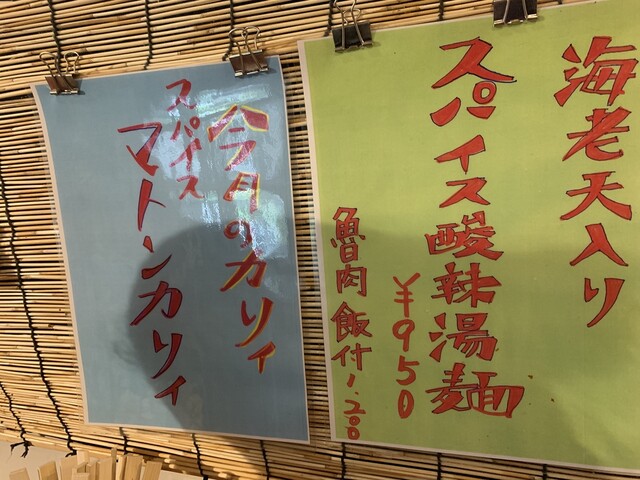 海老天入り
スパイス酸辣湯麺
¥950
魯肉飯付1.200
今月のカリィ
スパイス
マトンカリィ